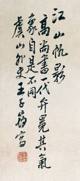 江山恍影
高尚書一代弁冕其氣
象自是不同
虞山弟王子若寫